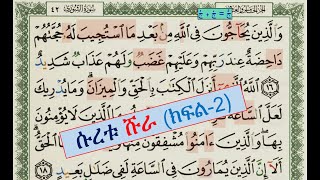 سُورَةُ الشُّورَىٰ ٤٢
وَالَّذِينَ يُحَاجُّونَ فِي اللَّهِ مِنۢ بَعْدِ مَا ٱسْتُجِيبَ لَهُۥ حُجَّتُهُمْ
دَاحِضَةٌ عِندَ رَبِّهِمْ وَعَلَيْهِمْ غَضَبٌ وَلَهُمْ عَذَابٌ شَدِيدٌ
١٦ ٱللَّهُ ٱلَّذِىٓ أَنزَلَ ٱلْكِتَٰبَ بِٱلْحَقِّ وَٱلْمِيزَانَ وَمَا يُدْرِيكَ
لَعَلَّ ٱلسَّاعَةَ ٱلَّذِينَ لَا يُؤْمِنُونَ
بِهَا وَٱلَّذِينَ ءَامَنُوا۟ مُشْفِقُونَ ٱلْحَقُّ
أَلَآ إِنَّ ٱلَّذِينَ يُمَارُونَ فِى ٱلسَّاعَةِ لَفِى ضَلَٰلٍۭ بَعِيدٍ ١٨
ሱረቱ ሹራ (ክፍል-2)